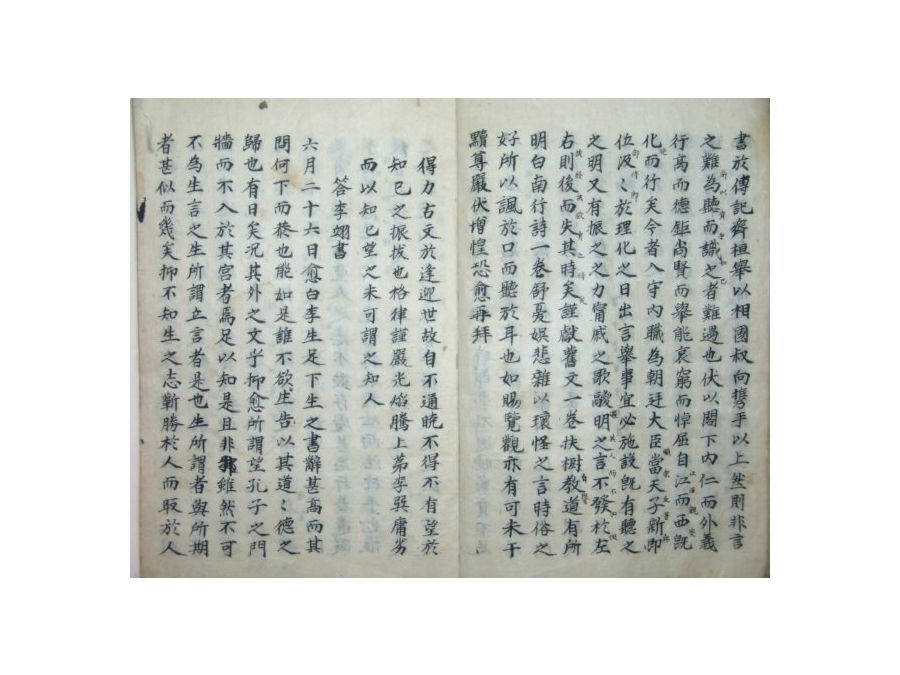 書於傳記齊桓舉以相國叔向攜手以上然則非言
之難為聽而識之者難遇也伏以閤下內仁而外義
行高而德鉅尚賢而舉能哀窮而悼屈自江而西既
化而行矣今者入守內職為朝廷大臣當天子新即
位汲〻於理化之日出言舉事宜必施設既有聽之
之明又有振之之力甯戚之歌鬷明之言不發於左
右則後而失其時矣謹獻舊文一卷扶樹教道有所
明白南行詩一卷舒憂娛悲雜以瓌怪之言時俗之
好所以諷於口而聽於耳也如賜覽觀亦有可采干
黷尊嚴伏增惶恐愈再拜
得力古文於逢迎世故自不通晩不得不有望於
知已之振拔也格律謹嚴光焰騰上第李巽庸劣
而以知已望之未可謂之知人
答李翊書
六月二十六日愈白李生足下生之書辭甚高而其
問何下而恭也能如是誰不欲生告以其道〻德之
歸也有日矣況其外之文乎抑愈所謂望孔子之門
牆而不入於其宮者焉足以知是且非邪雖然不可
不為生言之生所謂立言者是也生所謂者與所期
者甚似而幾矣抑不知生之志蘄勝於人而取於人